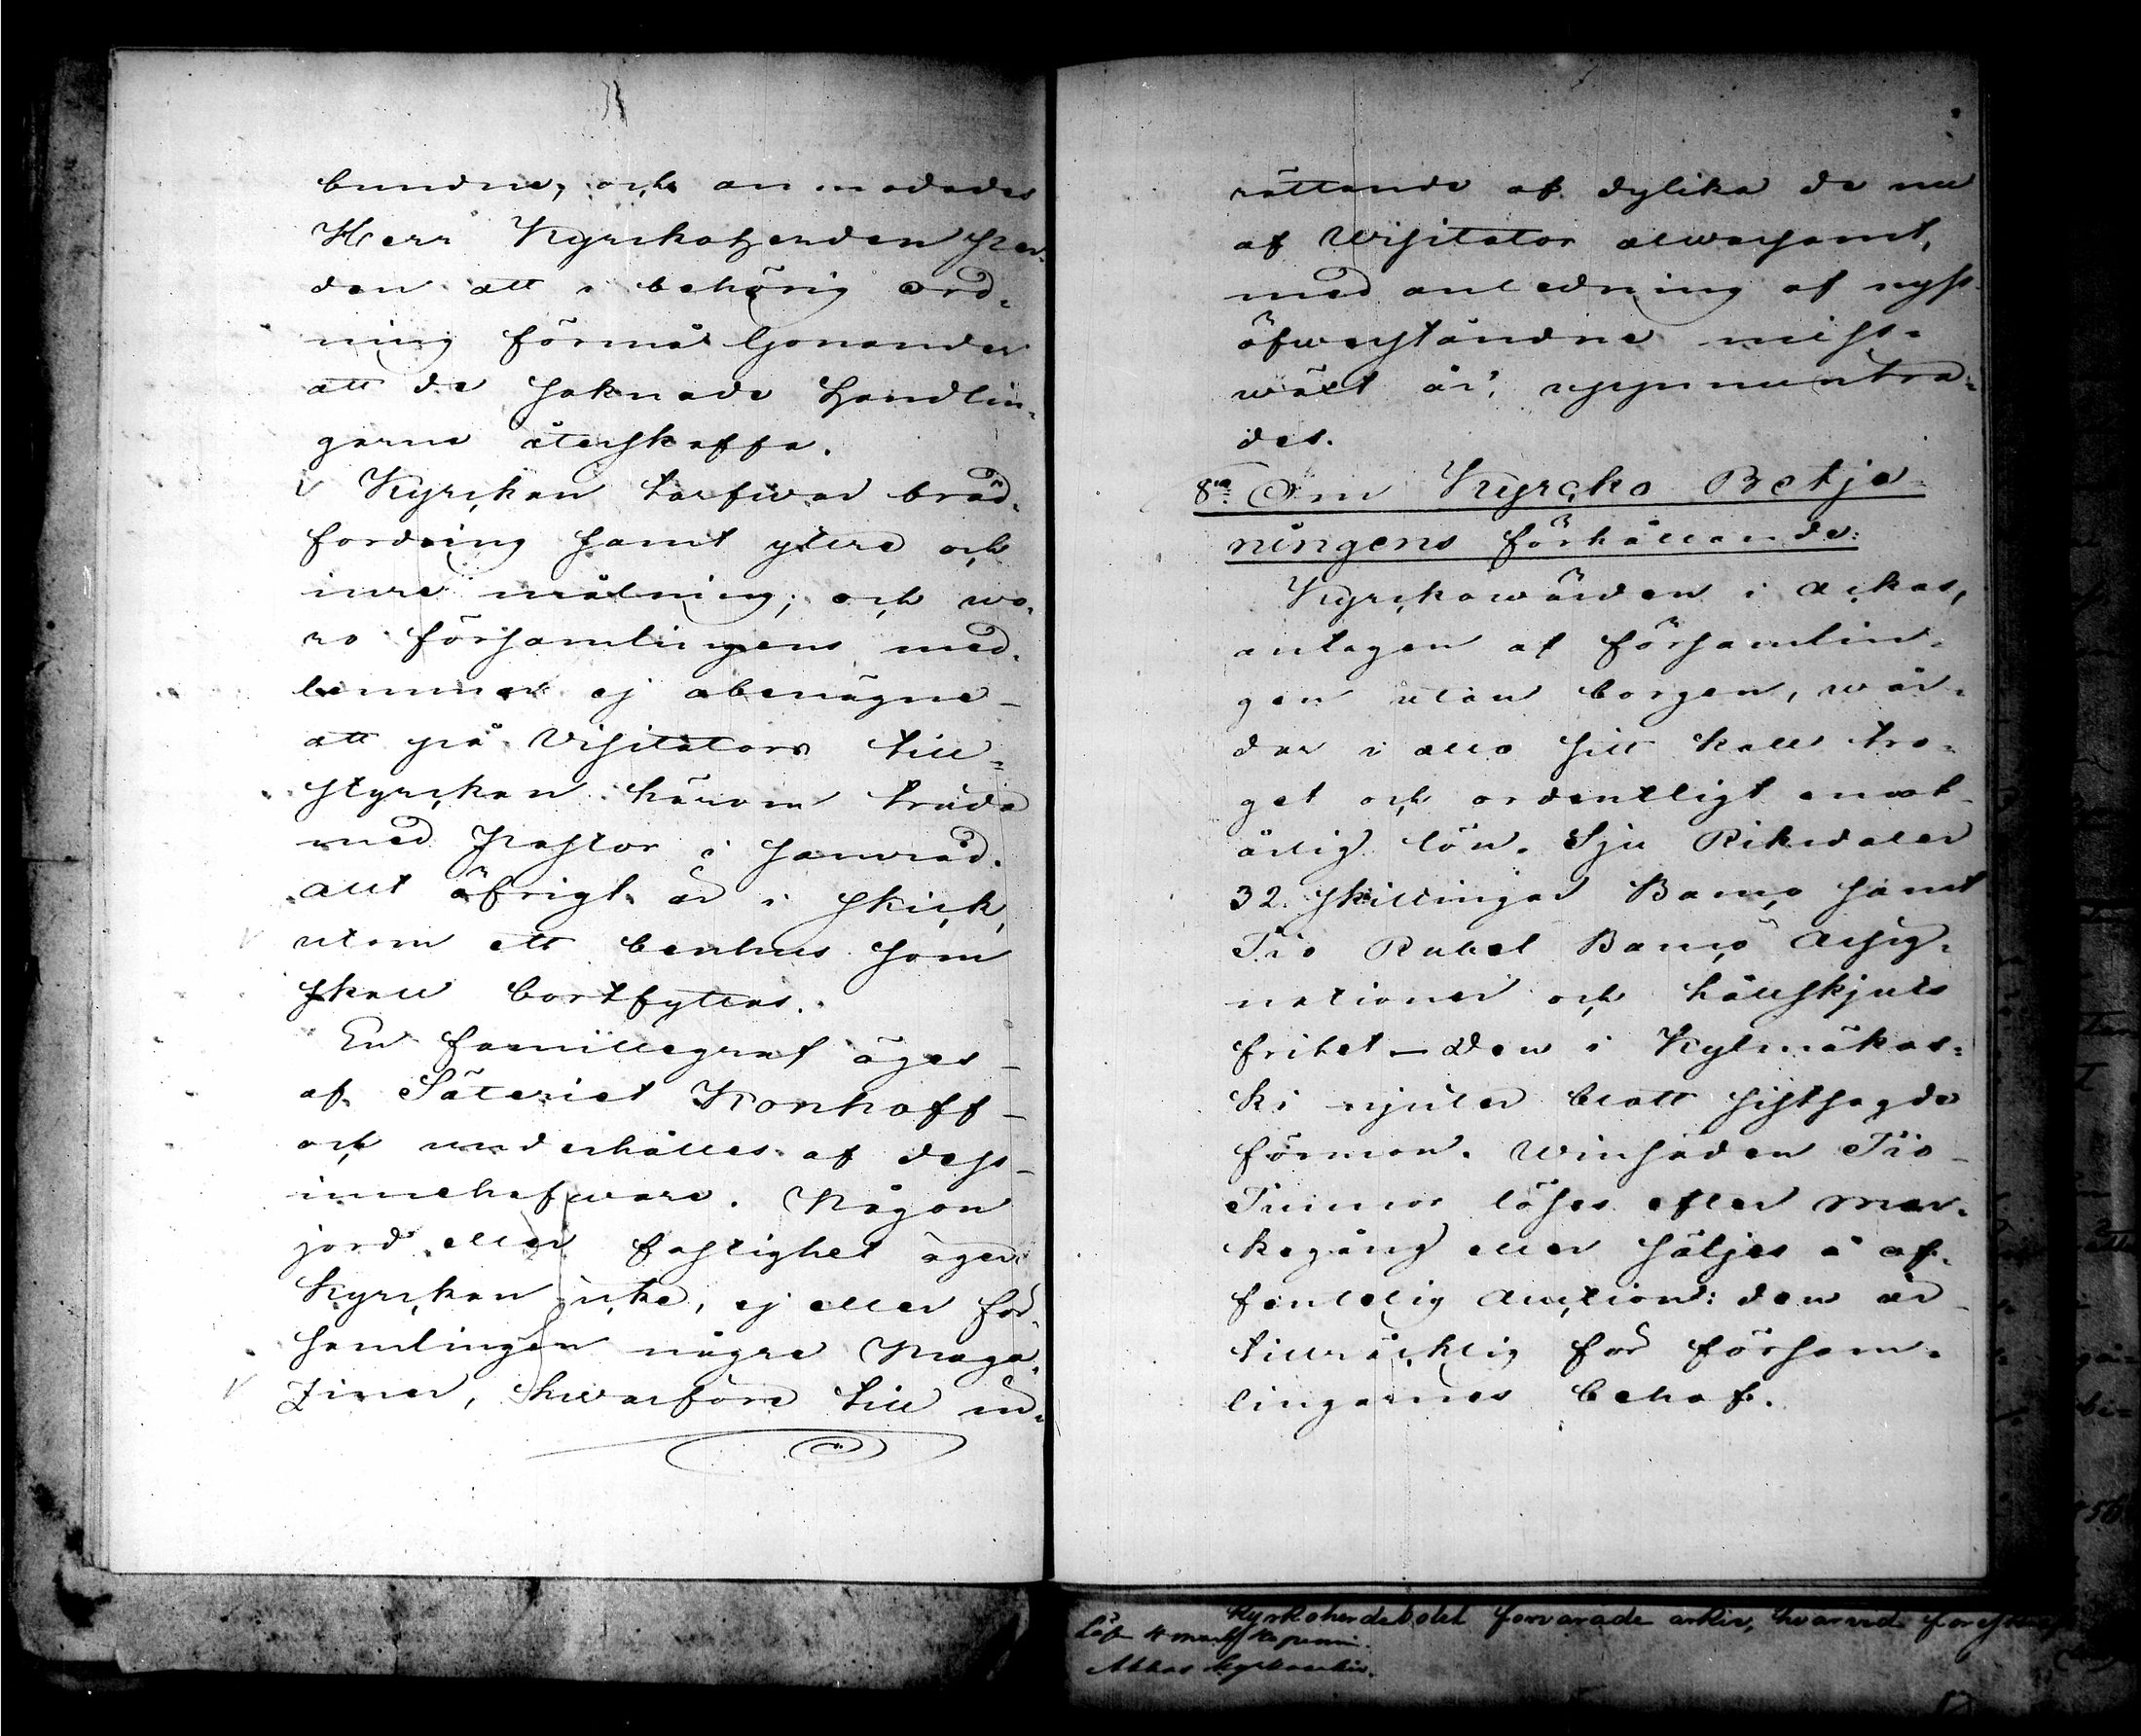 bundne, och anmodades
Herr Kyrckoherden
den att i behörig ord-
ning förmå Gonander
att de saknade Handlin-
garne återskaffa.
Kyrckan tarfwar bräd-
fordring samt yttre och
inre målning; och wo-
ro församlingens med-
lemmar ej obenägne
att på Visitators till-
styrckan härom träda
med Pastor i samråd.
Allt öfrigt är i skick,
utom ett benhus som
skall bortflyttas.
En famillegraf äges
af Säteriet Honhoff
och underhålles af dess
innehafware. Någon
jord eller fastighet äger
Kyrckan icke, ej eller för-
samlingen några Maga-
ziner, hwarföre till in-
rättande af dylika de nu
af Wisitator alwarsamt,
med anledning af nyss
öfwerståndne miss-
wäxt år, uppmuntra-
des.
8:a Om Kyrcko Betje-
ningens förhållande:
Kyrckowärden i Ackas,
antagen af församlin-
gen utan borgen, wår-
dar i allo sitt kall tro-
get och ordentligt emot
årlig lön. Sju Riksdaler
32. skillingar Banco samt
Tio Rubel Banco Assig-
nationer och hållskjuts
frihet — Den i Kylmäkos-
ki njuter blott sistsagde
förmon. Winsäden Tio
Tunnor löses efter mar-
kegång eller säljes å of-
fentelig Auction: den är
tillräcklig för försam-
lingarnes behof.
Kyrkoherdebolet förvarade arkiv, hvarvid
Akkas